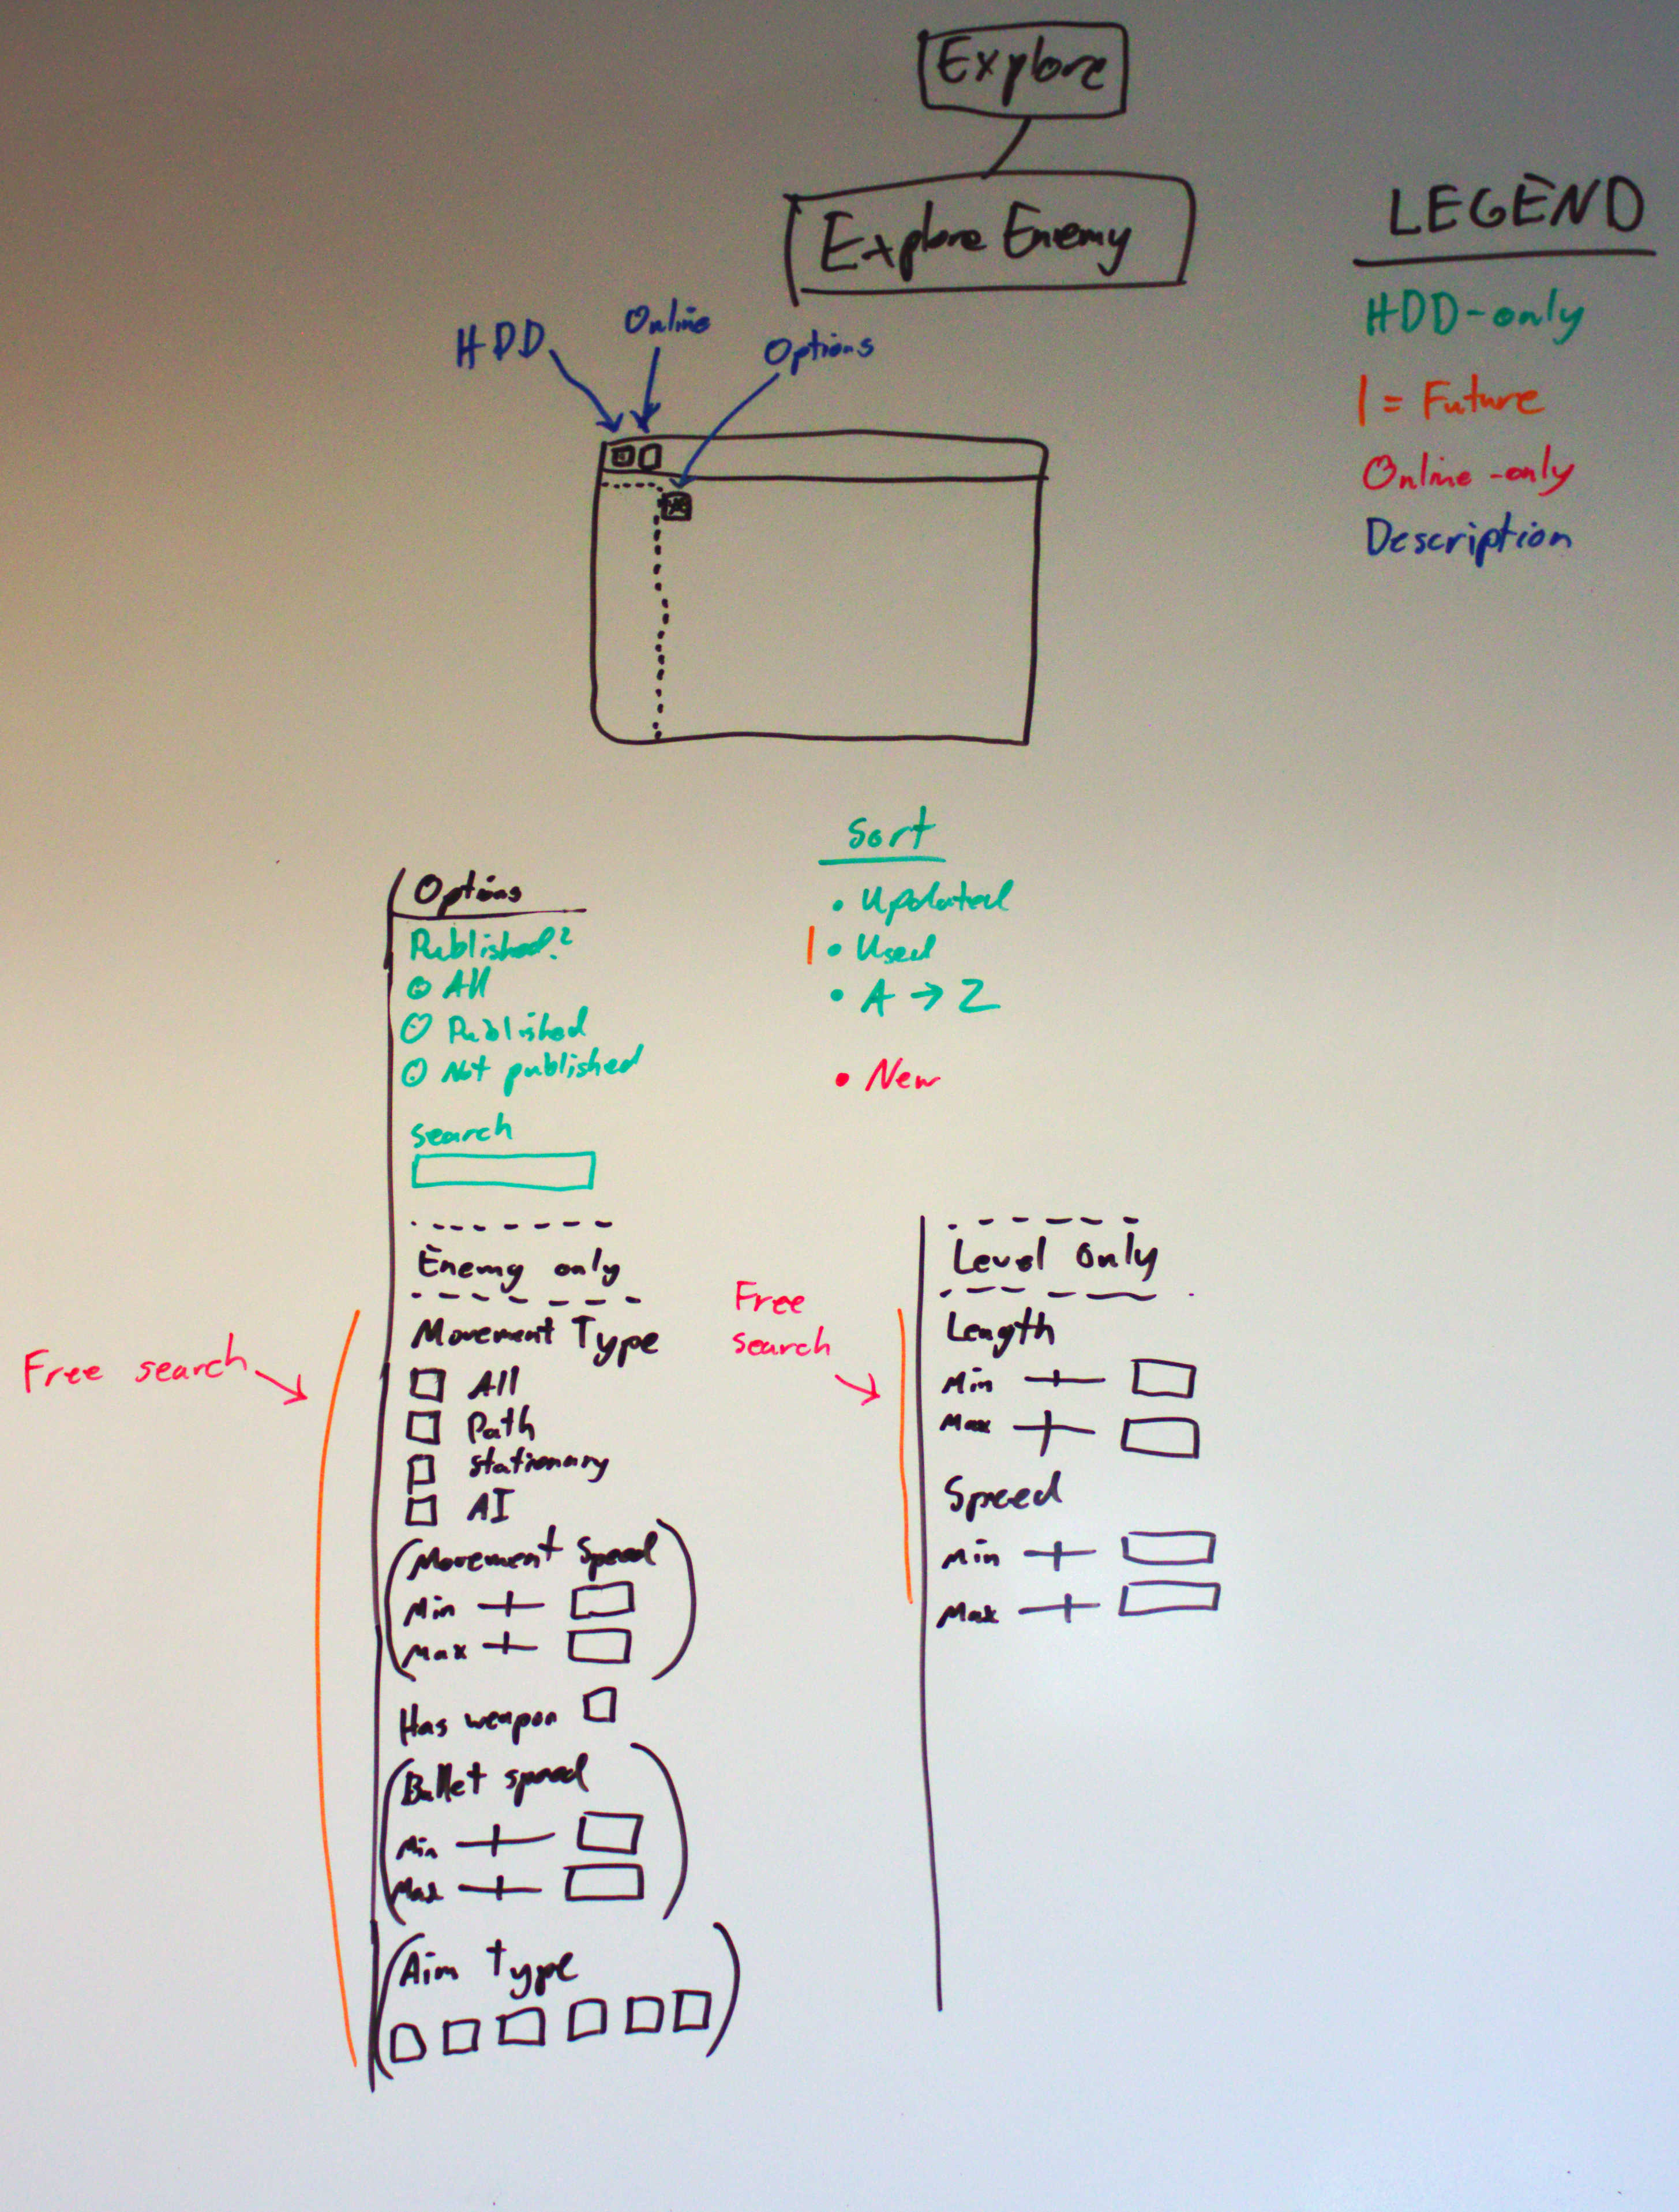 Explore
Explore Enemy
LEGEND
HDD-only
| = Future
Online-only
Description
HDD
Online
Options
Sort
• Updated
| • Used
• A → Z
• New
Options
Published?
All
Published
Not published
Search
Enemy only
Free search
Movement Type
All
Path
Stationary
AI
(Movement Speed
Min
Max)
Has weapon
(Bullet speed
Min
Max)
(Aim type)
Level Only
Free
search
Length
Min
Max
Speed
Min
Max